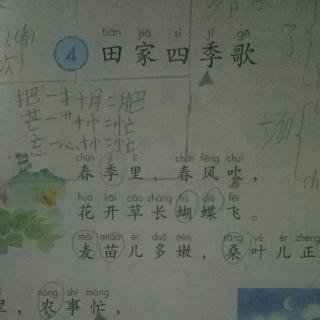 tián jiā sì jì gē
4 田家四季歌
把一扌十月二肥
芒一艹十小二忙
忘一心十小二忙
chūn jì lǐ chūn fēng chuī
春季里，春风吹，
huā kāi cǎo zhǎng hú dié fēi
花开草长蝴蝶飞。
mài miáo ér duō nèn sāng yè ér zhèng
麦苗儿多嫩，桑叶儿正
nóng shì máng
里，农事忙，